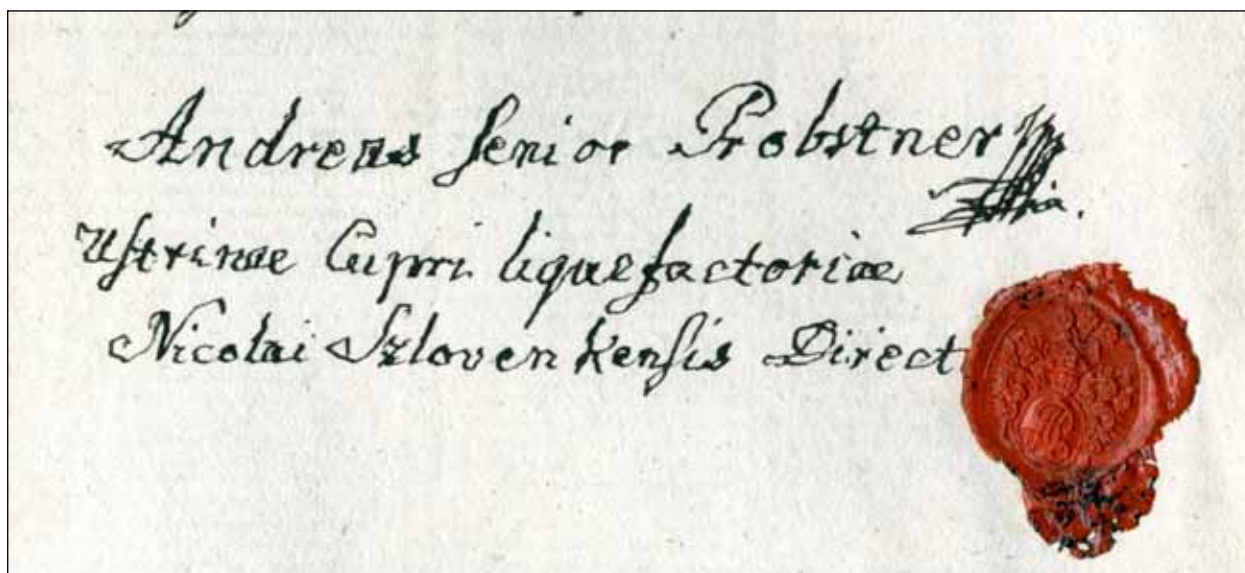 Andreas Senior Probstner
Ustrinae Cupri liquefactoriae
Nicolai Szlovenkensis Direct